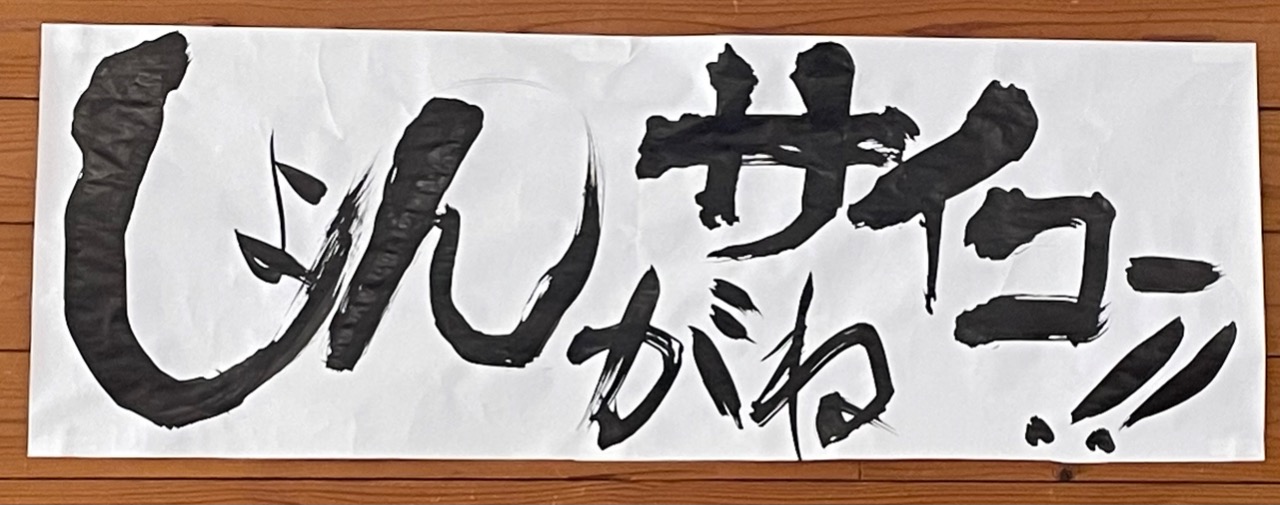 しょんがね
サイコー!!